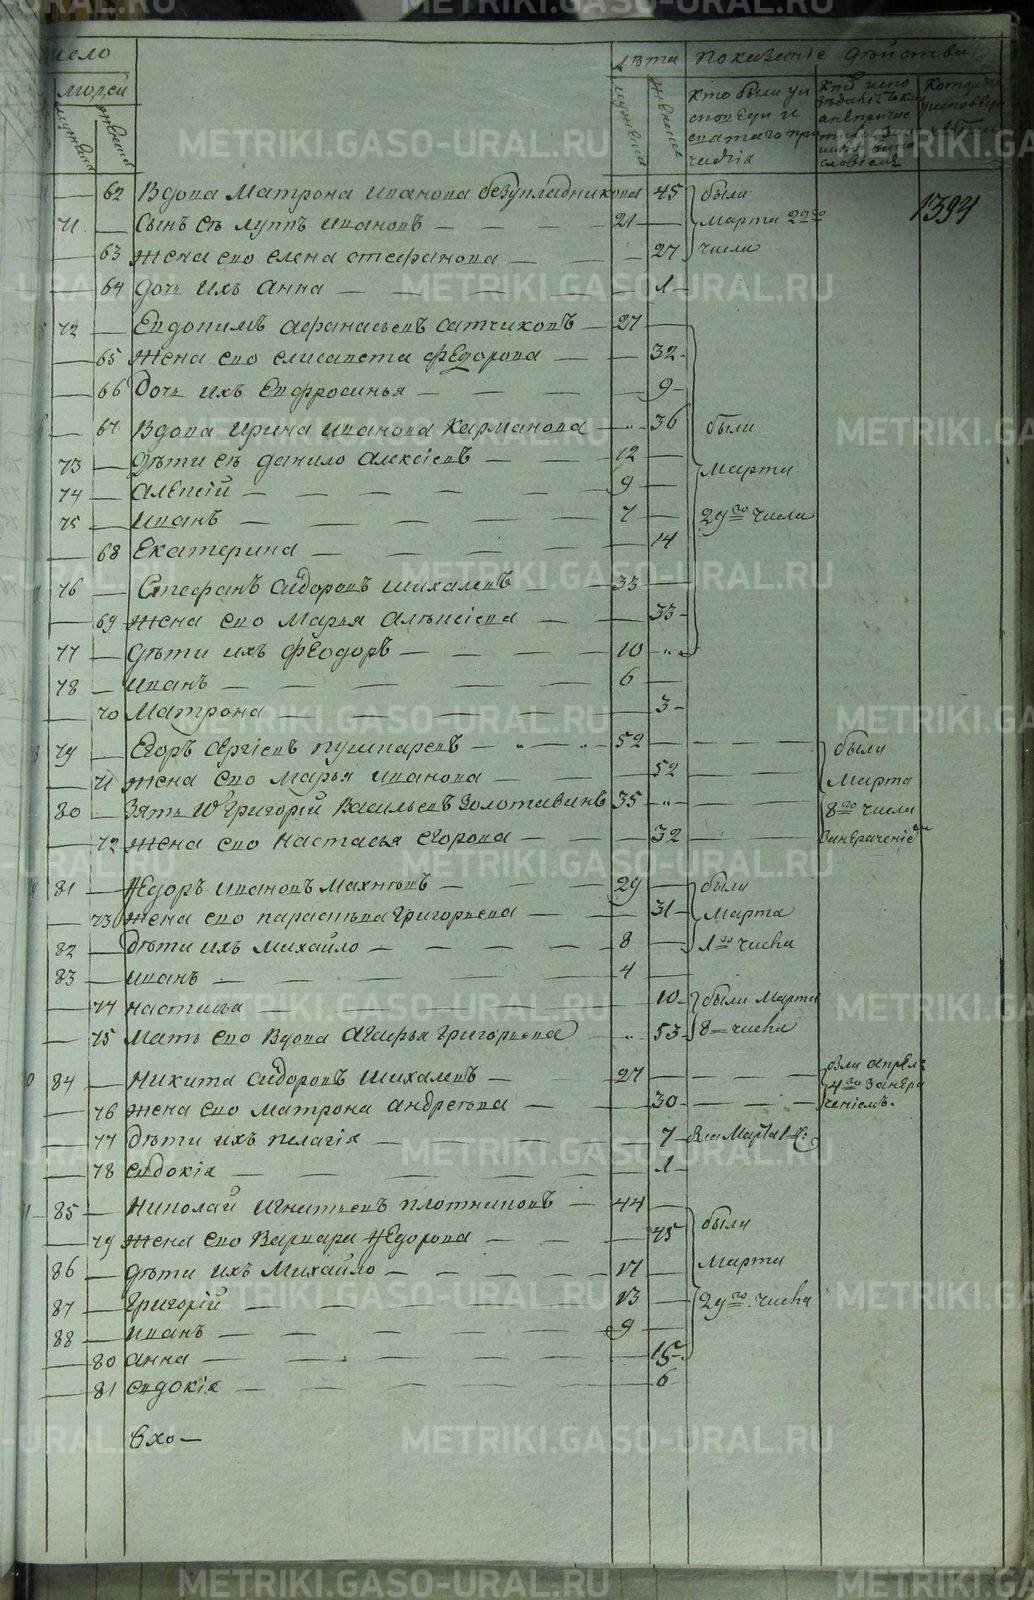 число
людей
мужеска
женска
лѣта
мужеска
женска
показанїе дѣйства
кто были у и
споведи и
святаго при
частїя
1394
62 Вдова Матрона иванова безукладникова 45
71 Сынъ еѣ луппъ ивановъ 21
63 жена его елена стефанова 27
64 дочь ихъ анна 1
были
марта 22го
числа
72 Евдокимъ афанасьевъ сатчиковъ 27
65 жена его елисавета федорова 32
66 Дочь ихъ Евфросинья 9
67 Вдова ирина иванова карманова 36
73 дѣти еѣ данило алексїевъ 12
74 алексїй 9
75 иванъ 7
68 Екатерина 14
76 Стефанъ сидоровъ шихалевъ 33
69 жена его марья алексїева 33
77 дѣти ихъ феодоръ 10
были
марта
29го числа
78 иванъ 6
70 Матрона 3
79 Егоръ сергїевъ пушкаревъ 52
71 жена его марья иванова 52
80 зять их григорїй васильевъ золотавинъ 35
72 жена его настасья егорова 32
были
марта
8го числа
81 Федоръ ивановъ махневъ 29
73 жена его параскева григорьева 31
82 дѣти ихъ михайло 8
были
марта
1го числа
83 иванъ 4
74 настасья 10
75 мать его вдова агафья григорьева 53
были марта
8 числа
84 никита сидоровъ шихалевъ 27
76 жена его матрона андреева 30
были апреля
4го
77 дѣти ихъ пелагїя 7
78 евдокїя 1
85 николай игнатьевъ плотниковъ 44
79 жена его варвара федорова 45
86 дѣти ихъ михайло 17
87 григорїй 13
88 иванъ 9
80 анна 15
были
марта
29го числа
81 евдокїя 6
METRIKI.GASO-URAL.RU